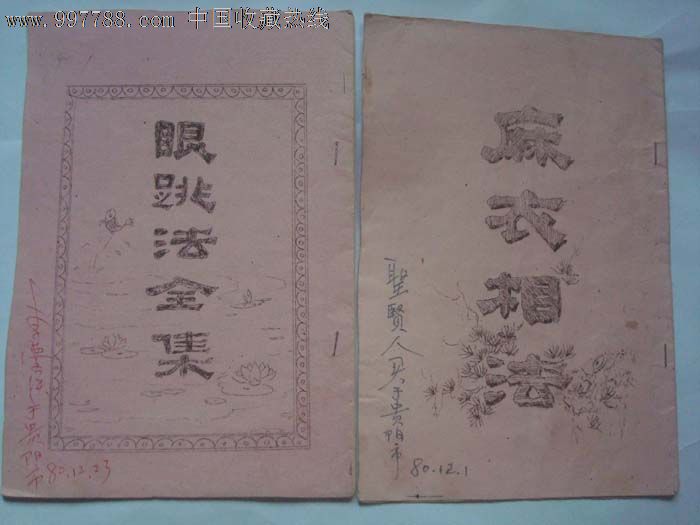 www.997788.com 中国收藏热线
眼跳法全集
于贵阳市
80.12.23
麻衣相法
聖賢人买于貴阳市
80.12.1